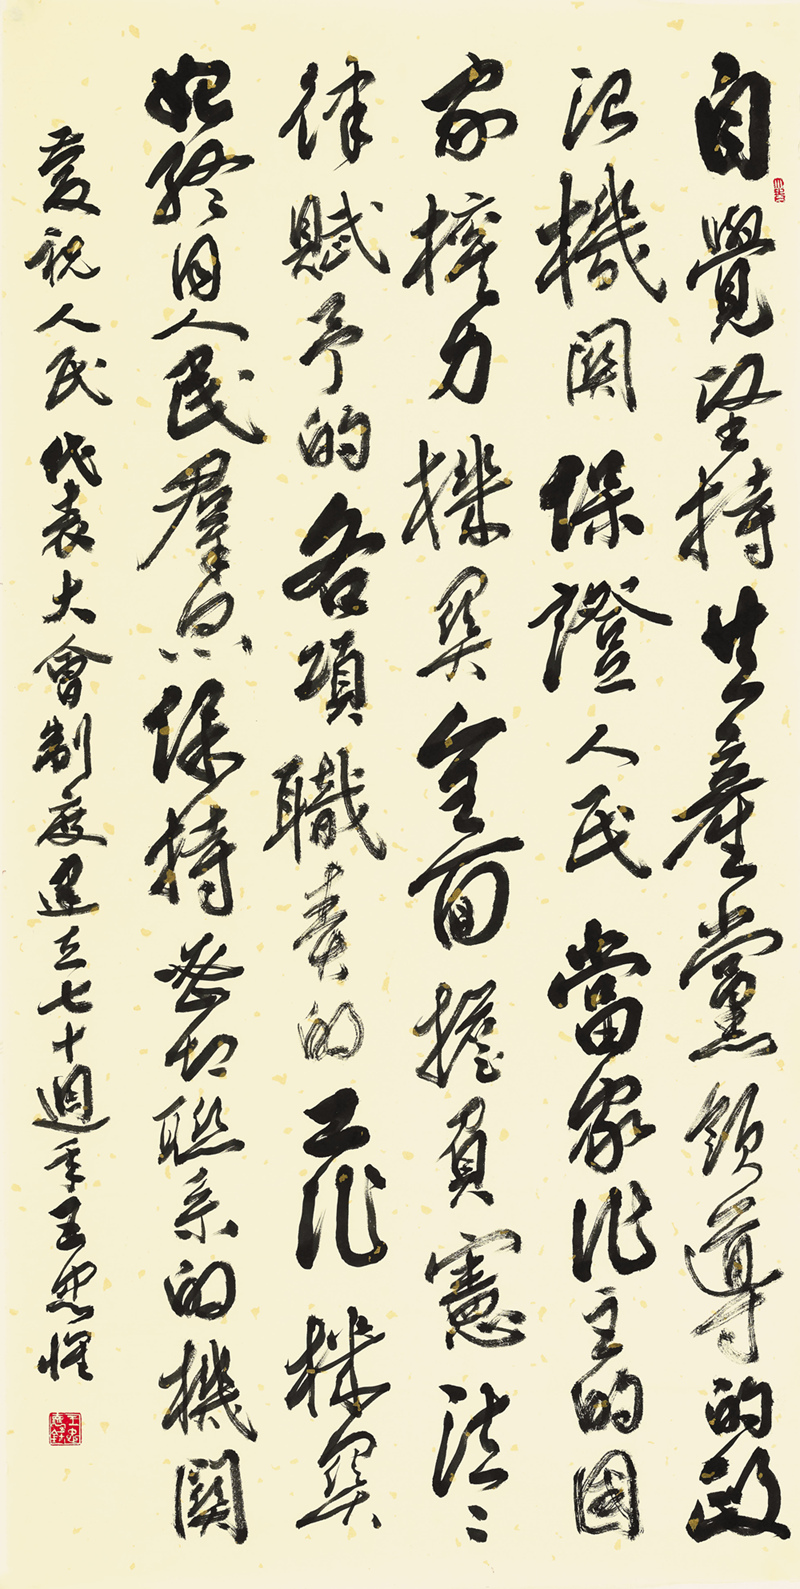 自覺堅持共產黨領導的政
治機關保證人民當家作主的國
家權力機關全面擔負憲法〻
律賦予的各項職責的工作機關
始終同人民羣眾保持密切聯系的機關
慶祝人民代表大會制度建立七十週年王忠